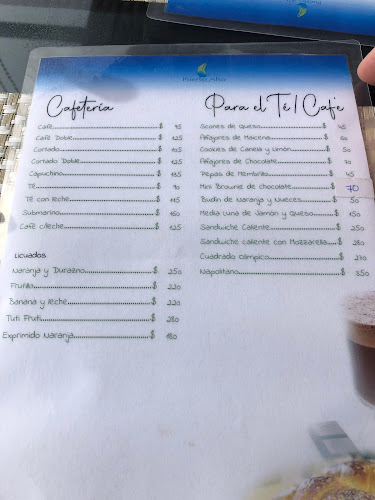 Cafetería
Café $ 95
Café Doble $ 125
Cortado $ 125
Cortado Doble $ 125
Capuchino $ 135
Té $ 90
Té con leche $ 115
Submarino $ 150
Café c/leche $ 125
Licuados
Naranja y Durazno $ 250
Frutilla $ 220
Banana y leche $ 220
Tuti Fruti $ 280
Exprimido Naranja $ 180
Para el Té / Café
Scones de queso $ 45
Alfajores de Maicena $ 60
Cookies de Canela y Limón $ 50
Alfajores de Chocolate $ 70
Pepas de Membrillo $ 45
Mini Brownie de chocolate $ 70
Budín de Naranja y Nueces $ 50
Media Luna de Jamón y Queso $ 150
Sandwiche Caliente $ 250
Sandwiche caliente con Mozzarella $ 280
Cuadrado Olímpico $ 270
Napolitano $ 350